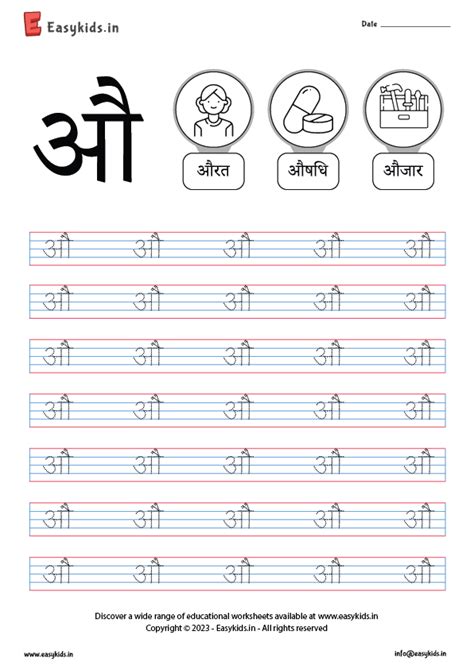 E Easykids.in
Date
औ
औरत औषधि औजार
औ औ औ औ औ
औ औ औ औ औ
औ औ औ औ औ
औ औ औ औ औ
औ औ औ औ औ
औ औ औ औ औ
औ औ औ औ औ
Discover a wide range of educational worksheets available at www.easykids.in
Copyright © 2023 - Easykids.in - All rights reserved
www.easykids.in info@easykids.in